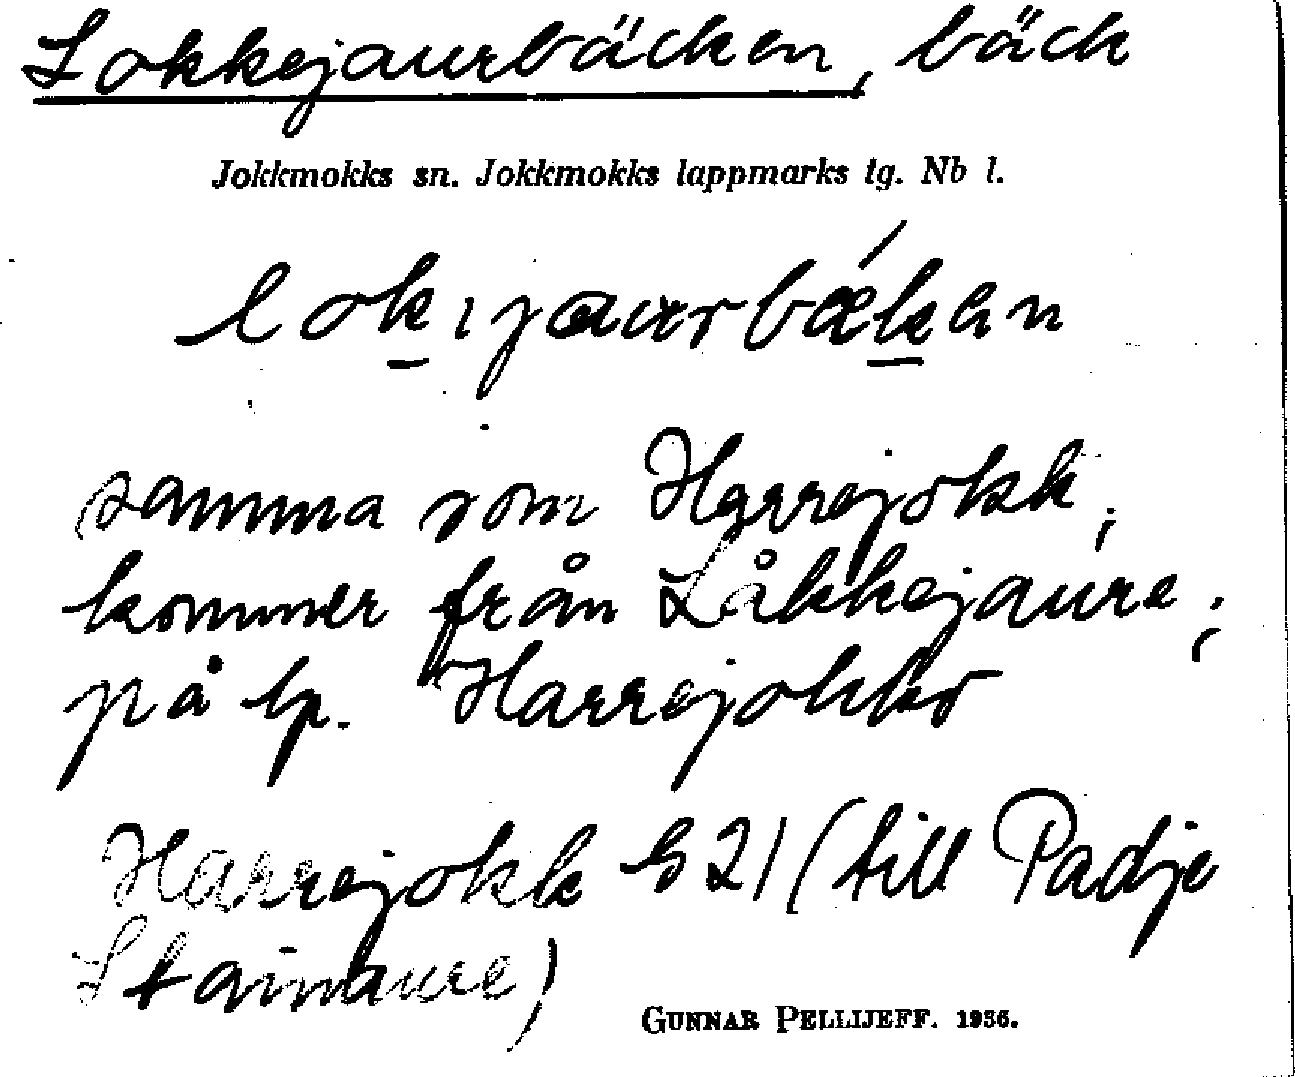 Lokkejaurbäcken, bäck
Jokkmokks sn. Jokkmokks lappmarks tg. Nb l.
lokıjaurbǽkan
samma som Harrejokk,
kommer från Låkkejaure;
på lp. Harrejokko
Harrejokk G 21 (till Padje
Stainaure)
GUNNAR PELLIJEFF. 1956.